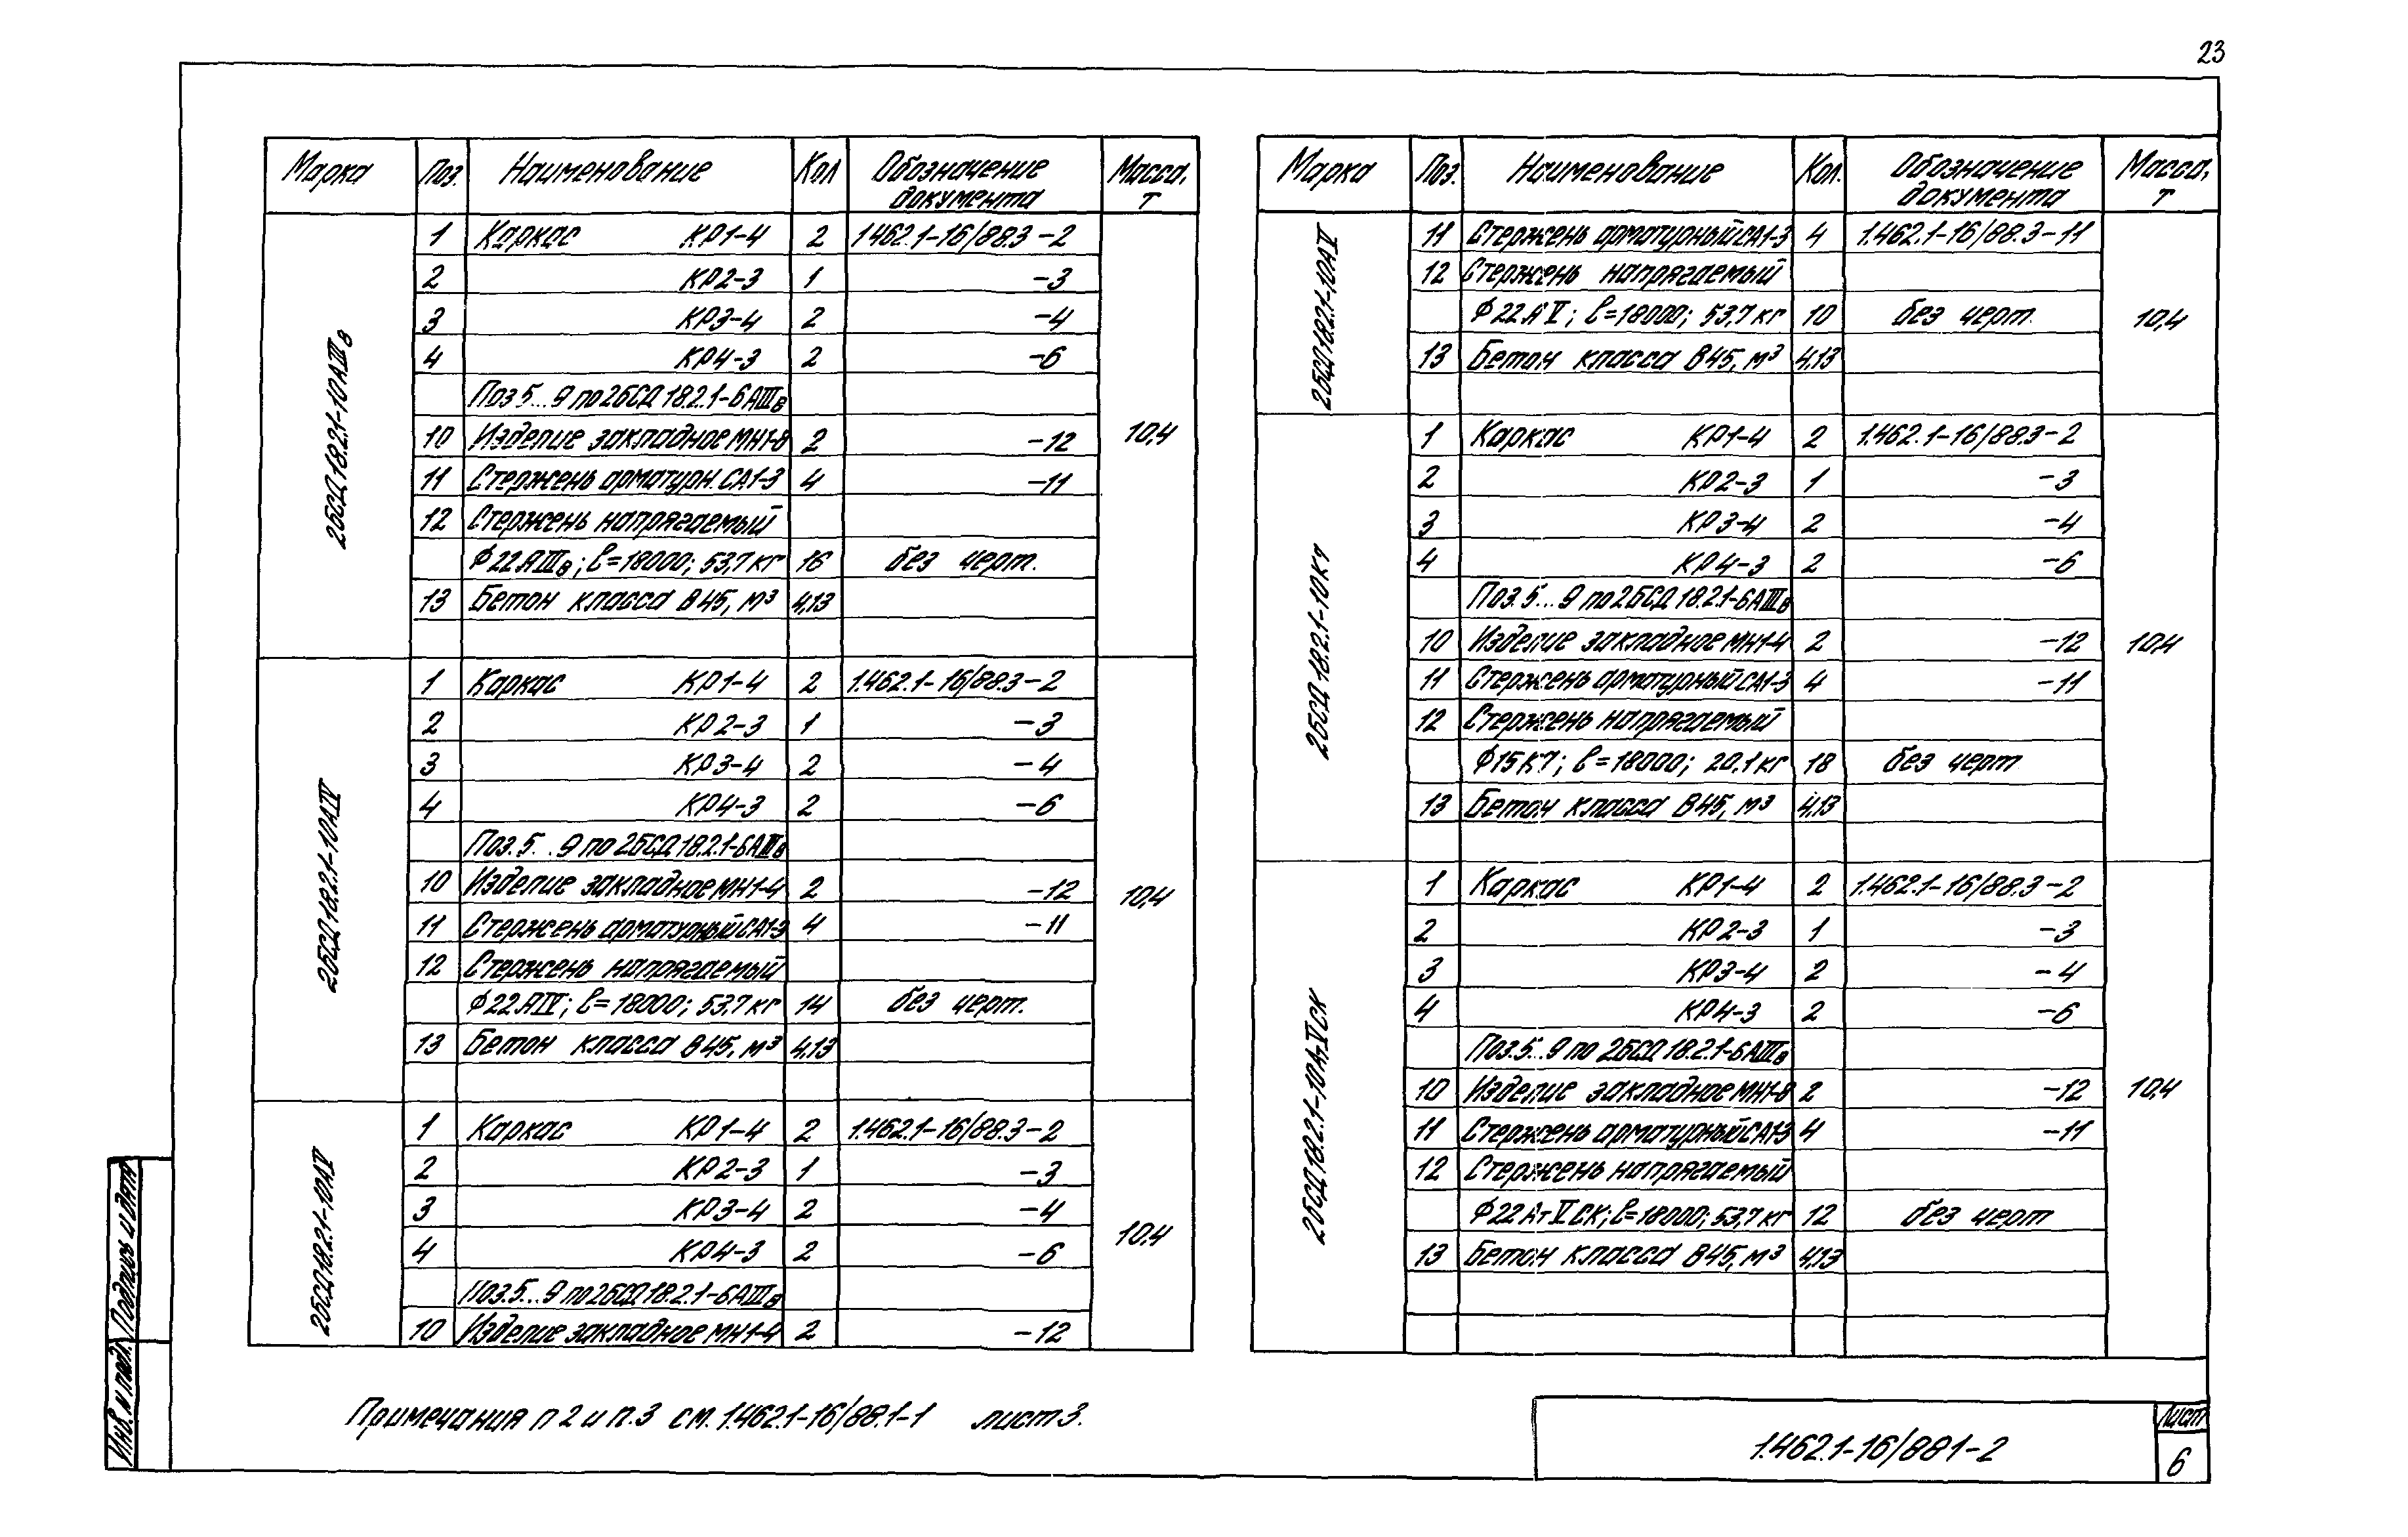 23
Марка Поз. Наименование Кол Обозначение документа Масса, т
2БСД18.2.1-10АIIIв
1 Каркас КР1-4 2 1.462.1-16/88.3-2
2 КР2-3 1 -3
3 КР3-4 2 -4
4 КР4-3 2 -6
Поз 5...9 по 2БСД 18.2.1-6АIIIв
10 Изделие закладное МН1-8 2 -12
10,4
11 Стержень арматурн. СА1-3 4 -11
12 Стержень напрягаемый
Ф22АIIIв; ℓ=18000; 53,7кг 16 без черт.
13 Бетон класса В45, м³ 4,13
2БСД18.2.1-10АIV
1 Каркас КР1-4 2 1.462.1-16/88.3-2
2 КР2-3 1 -3
3 КР3-4 2 -4
4 КР4-3 2 -6
Поз. 5...9 по 2БСД 18.2.1-6АIIIв
10 Изделие закладное МН1-4 2 -12
10,4
11 Стержень арматурный СА1-3 4 -11
12 Стержень напрягаемый
Ф22АIV; ℓ=18000; 53,7кг 14 без черт.
13 Бетон класса В45, м³ 4,13
2БСД18.2.1-10АV
1 Каркас КР1-4 2 1.462.1-16/88.3-2
2 КР2-3 1 -3
3 КР3-4 2 -4
10,4
4 КР4-3 2 -6
Поз.5...9 по 2БСД 18.2.1-6АIIIв
10 Изделие закладное МН1-4 2 -12
Марка Поз. Наименование Кол. Обозначение документа Масса, т
2БСД18.2.1-10АV
11 Стержень арматурный СА1-3 4 1.462.1-16/88.3-11
12 Стержень напрягаемый
Ф22АV; ℓ=18000; 53,7кг 10 без черт. 10,4
13 Бетон класса В45, м³ 4,13
2БСД 18.2.1-10К7
1 Каркас КР1-4 2 1.462.1-16/88.3-2
2 КР2-3 1 -3
3 КР3-4 2 -4
4 КР4-3 2 -6
Поз. 5...9 по 2БСД 18.2.1-6АIIIв
10 Изделие закладное МН1-4 2 -12 10,4
11 Стержень арматурный СА1-3 4 -11
12 Стержень напрягаемый
Ф15К7; ℓ=18000; 20,1кг 18 без черт
13 Бетон класса В45, м³ 4,13
2БСД18.2.1-10АтVСК
1 Каркас КР1-4 2 1.462.1-16/88.3-2
2 КР2-3 1 -3
3 КР3-4 2 -4
4 КР4-3 2 -6
Поз.5...9 по 2БСД 18.2.1-6АIIIв
10 Изделие закладное МН1-8 2 -12 10,4
11 Стержень арматурный СА1-3 4 -11
12 Стержень напрягаемый
Ф22АтVСК; ℓ=18000; 53,7кг 12 без черт
13 Бетон класса В45, м³ 4,13
Примечания п 2 и п.3 см. 1.462.1-16/88.1-1 лист 3.
1.462.1-16/881-2
Лист
6
Подпись и дата
Инв. и подл.